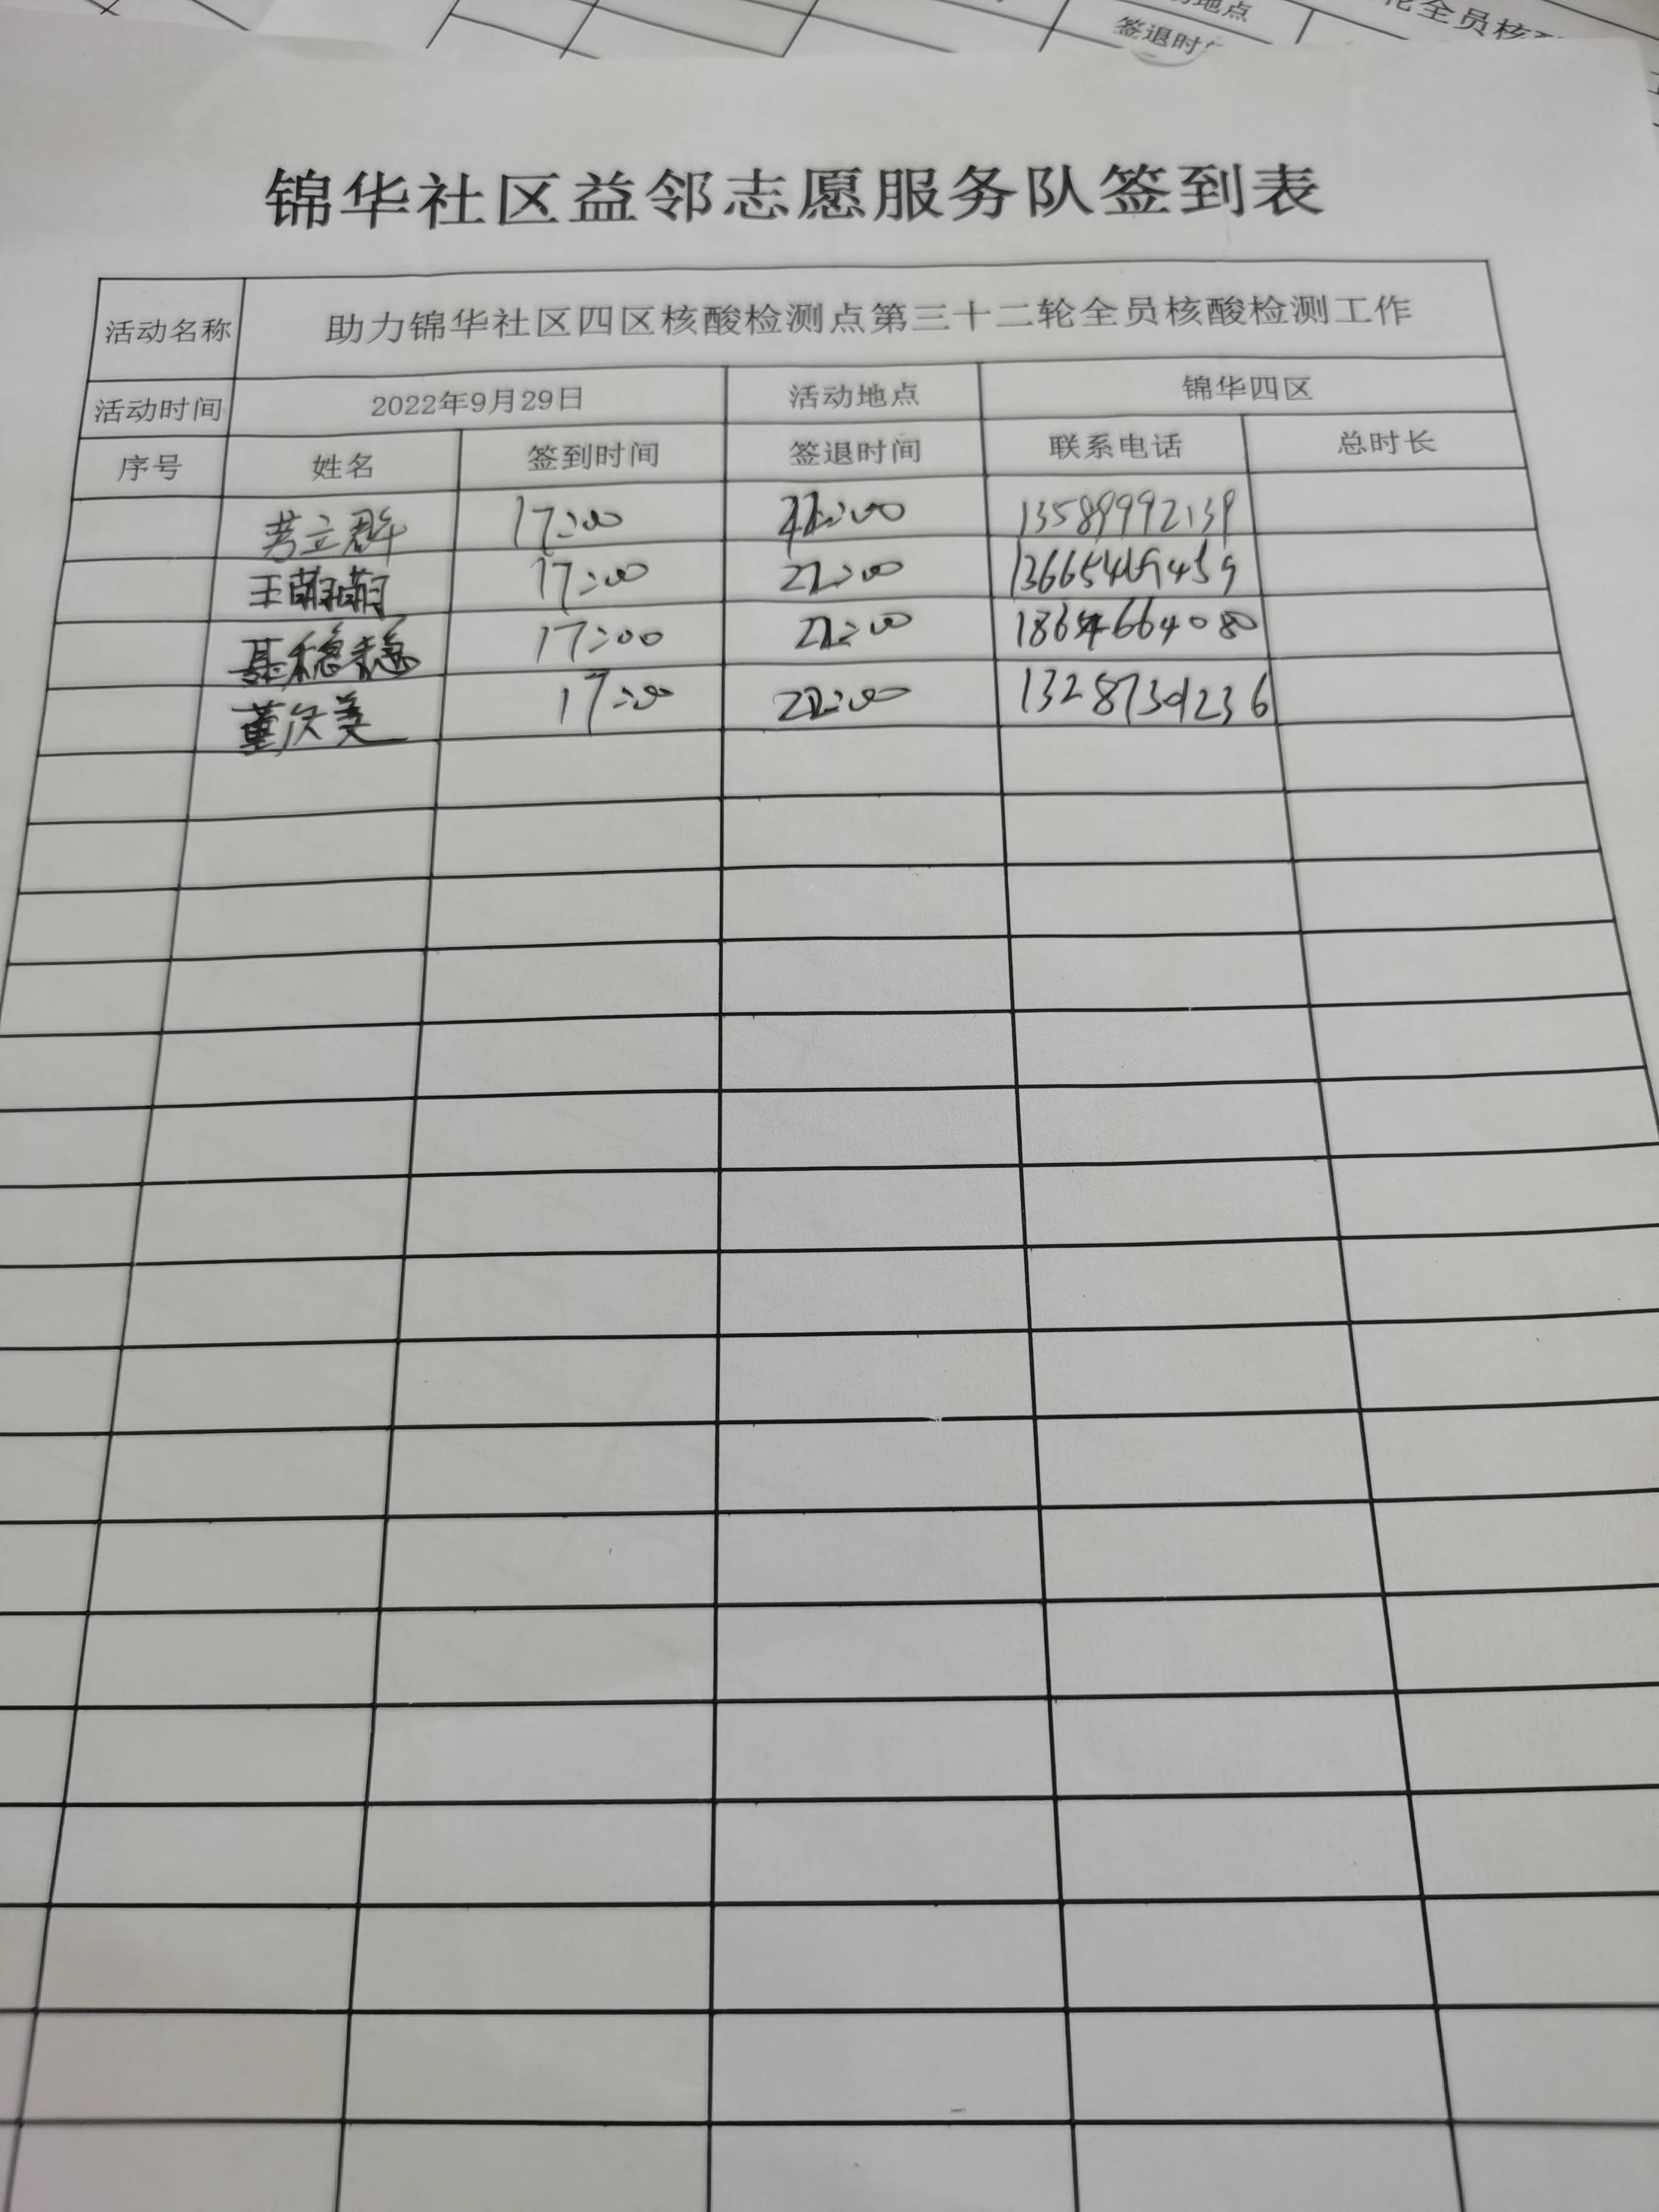 地点
签退时
轮全员核
锦华社区益邻志愿服务队签到表
活动名称 助力锦华社区四区核酸检测点第三十二轮全员核酸检测工作
活动时间 2022年9月29日 活动地点 锦华四区
序号 姓名 签到时间 签退时间 联系电话 总时长
立群 17:00 :00 13589992139
王萌萌 17:00 :00
綦稳稳 17:00 :00
董庆美 17:00 :00 13287309236